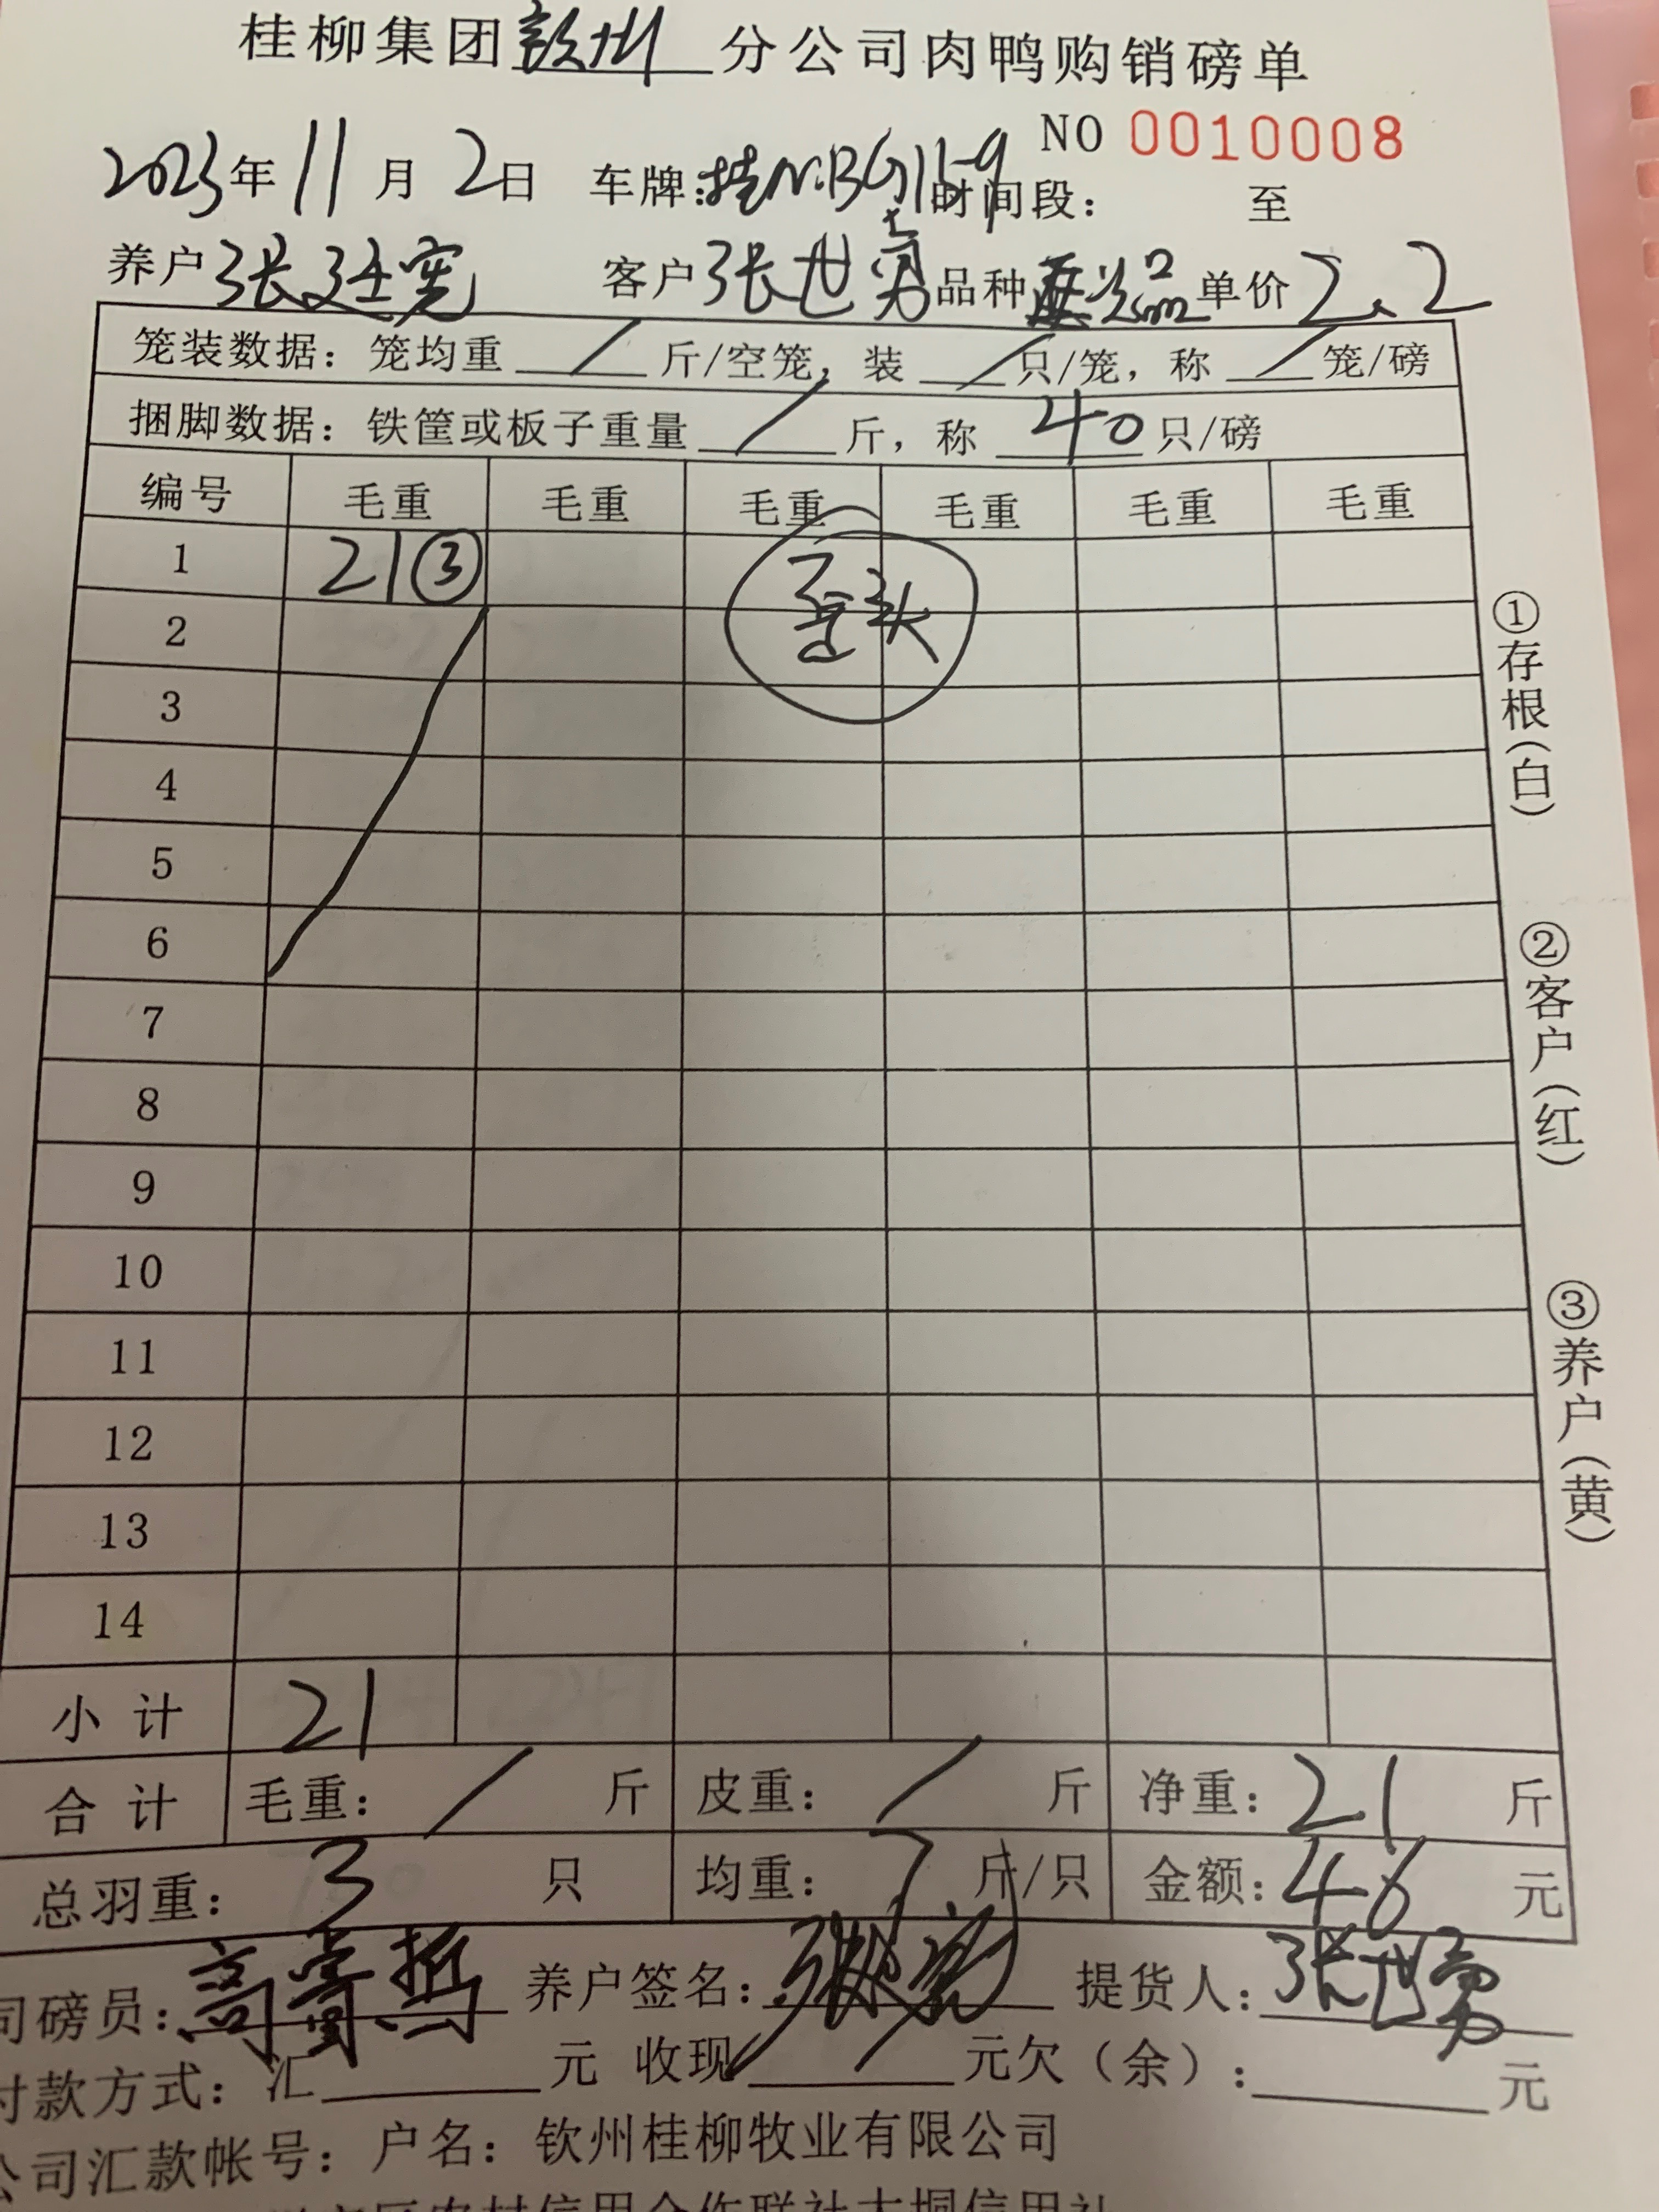 桂柳集团钦州分公司肉鸭购销磅单
NO 0010008
2023年11月2日 车牌: 时间段： 至
养户张廷宪 客户张世勇 品种 单价2.2
笼装数据：笼均重 / 斤/空笼，装 / 只/笼，称 / 笼/磅
捆脚数据：铁筐或板子重量 / 斤，称 40 只/磅
编号 毛重 毛重 毛重 毛重 毛重 毛重
1 21③
歪头
2
3
4
5
6
7
8
9
10
11
12
13
14
小计 21
合计 毛重： / 斤 皮重： / 斤 净重：21 斤
总羽重：3 只 均重：7 斤/只 金额：46 元
司磅员： 养户签名： 提货人：张世勇
付款方式：汇 元 收现 元欠（余）： 元
公司汇款帐号：户名：钦州桂柳牧业有限公司
①存根（白）
②客户（红）
③养户（黄）